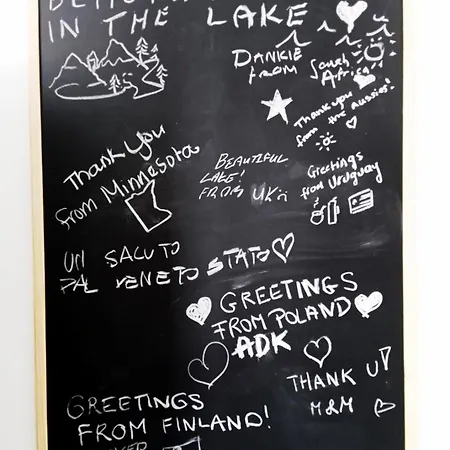 IN THE LAKE
DANKIE
FROM South
Africa
Thank you
from the aussies!
Thank You
from Minnesota
BEAUTIFUL
LAKE!
FROM UK
Greetings
from Uruguay
UN SALUTO
DAL VENETO STATO
GREETINGS
FROM POLAND
ADK
THANK U!
M&M
GREETINGS
FROM FINLAND!